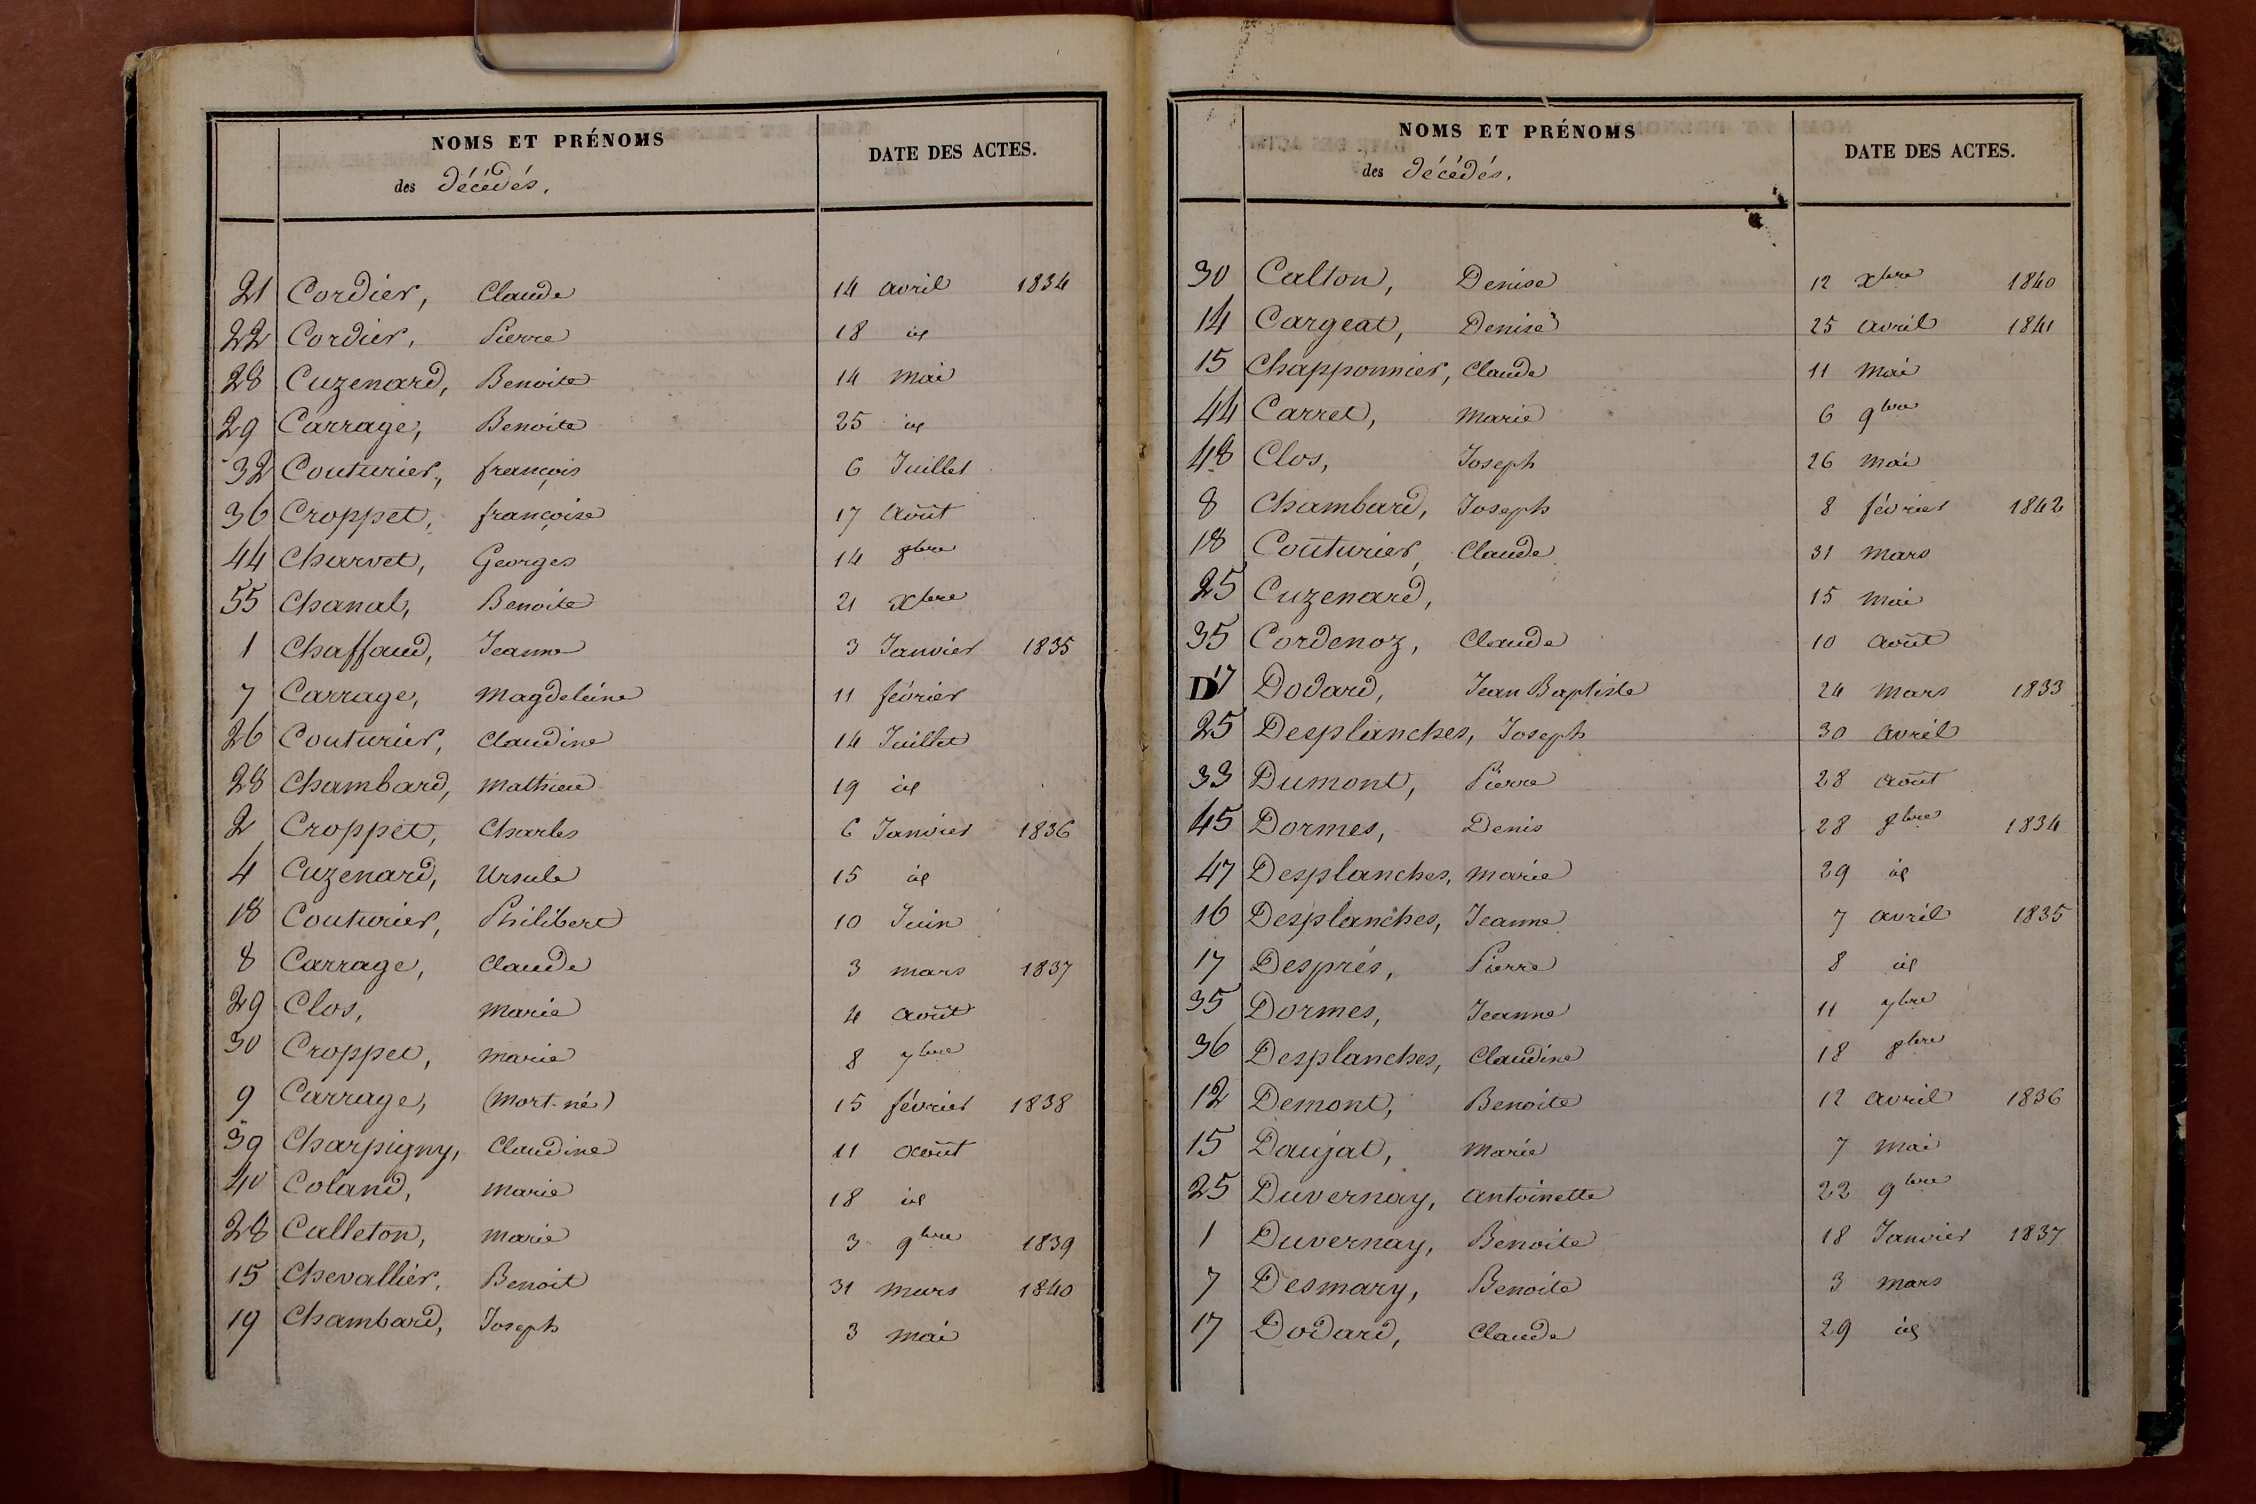 NOMS ET PRÉNOMS
des décédés,
DATE DES ACTES.
21 Cordier, Claude 14 avril 1834
22 Cordier, Pierre 18 id
28 Cuzenard, Benoite 14 mai
29 Carrage, Benoite 25 id
32 Couturier, françois 6 Juillet
36 Croppet, françoise 17 Août
44 Charvet, Georges 14 8bre
55 Chanal, Benoite 21 Xbre
1 Chaffaud, Jeanne 3 Janvier 1835
7 Carrage, Magdeleine 11 février
26 Couturier, Claudine 14 Juillet
28 Chambard, Mathieu 19 id
2 Croppet, Charles 6 Janvier 1836
4 Cuzenard, Ursule 15 id
18 Couturier, Philibert 10 Juin
8 Carrage, Claude 3 mars 1837
29 Clos, Marie 4 août
30 Croppet, Marie 8 7bre
9 Carrage, (mort-né) 15 février 1838
39 Charpigny, Claudine 11 août
40 Coland, Marie 18 id
28 Calleton, Marie 3 9bre 1839
15 Chevallier, Benoit 31 mars 1840
19 Chambard, Joseph 3 mai
NOMS ET PRÉNOMS
des décédés,
DATE DES ACTES.
30 Calton, Denise 12 Xbre 1840
14 Cargeat, Denise 25 avril 1841
15 Chapponnier, Claude 11 mai
44 Carret, Marie 6 9bre
48 Clos, Joseph 26 mai
8 Chambard, Joseph 8 février 1842
18 Couturier, Claude 31 mars
25 Cuzenard, 15 mai
35 Cordenoz, Claude 10 août
D 17 Dodard, Jean Baptiste 24 mars 1833
25 Desplanches, Joseph 30 avril
33 Dumont, Pierre 28 août
45 Dormes, Denis 28 8bre 1834
47 Desplanches, Marie 29 id
16 Desplanches, Jeanne 7 avril 1835
17 Desprès, Pierre 8 id
35 Dormes, Jeanne 11 7bre
36 Desplanches, Claudine 18 8bre
12 Demont, Benoite 12 avril 1836
15 Daujat, Marie 7 mai
25 Duvernay, Antoinette 22 9bre
1 Duvernay, Benoite 18 Janvier 1837
7 Desmary, Benoite 3 mars
17 Dodard, Claude 29 id